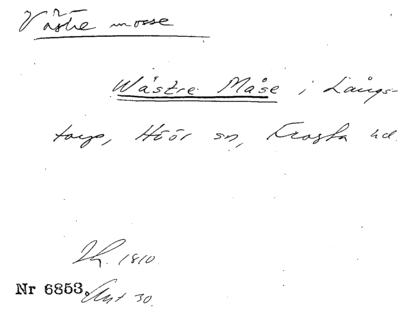 Västre mosse
Wästre Måse i Långs-
torp, Höör sn, Frosta hd.
Lh. 1810
Nr 6853. Akt 30